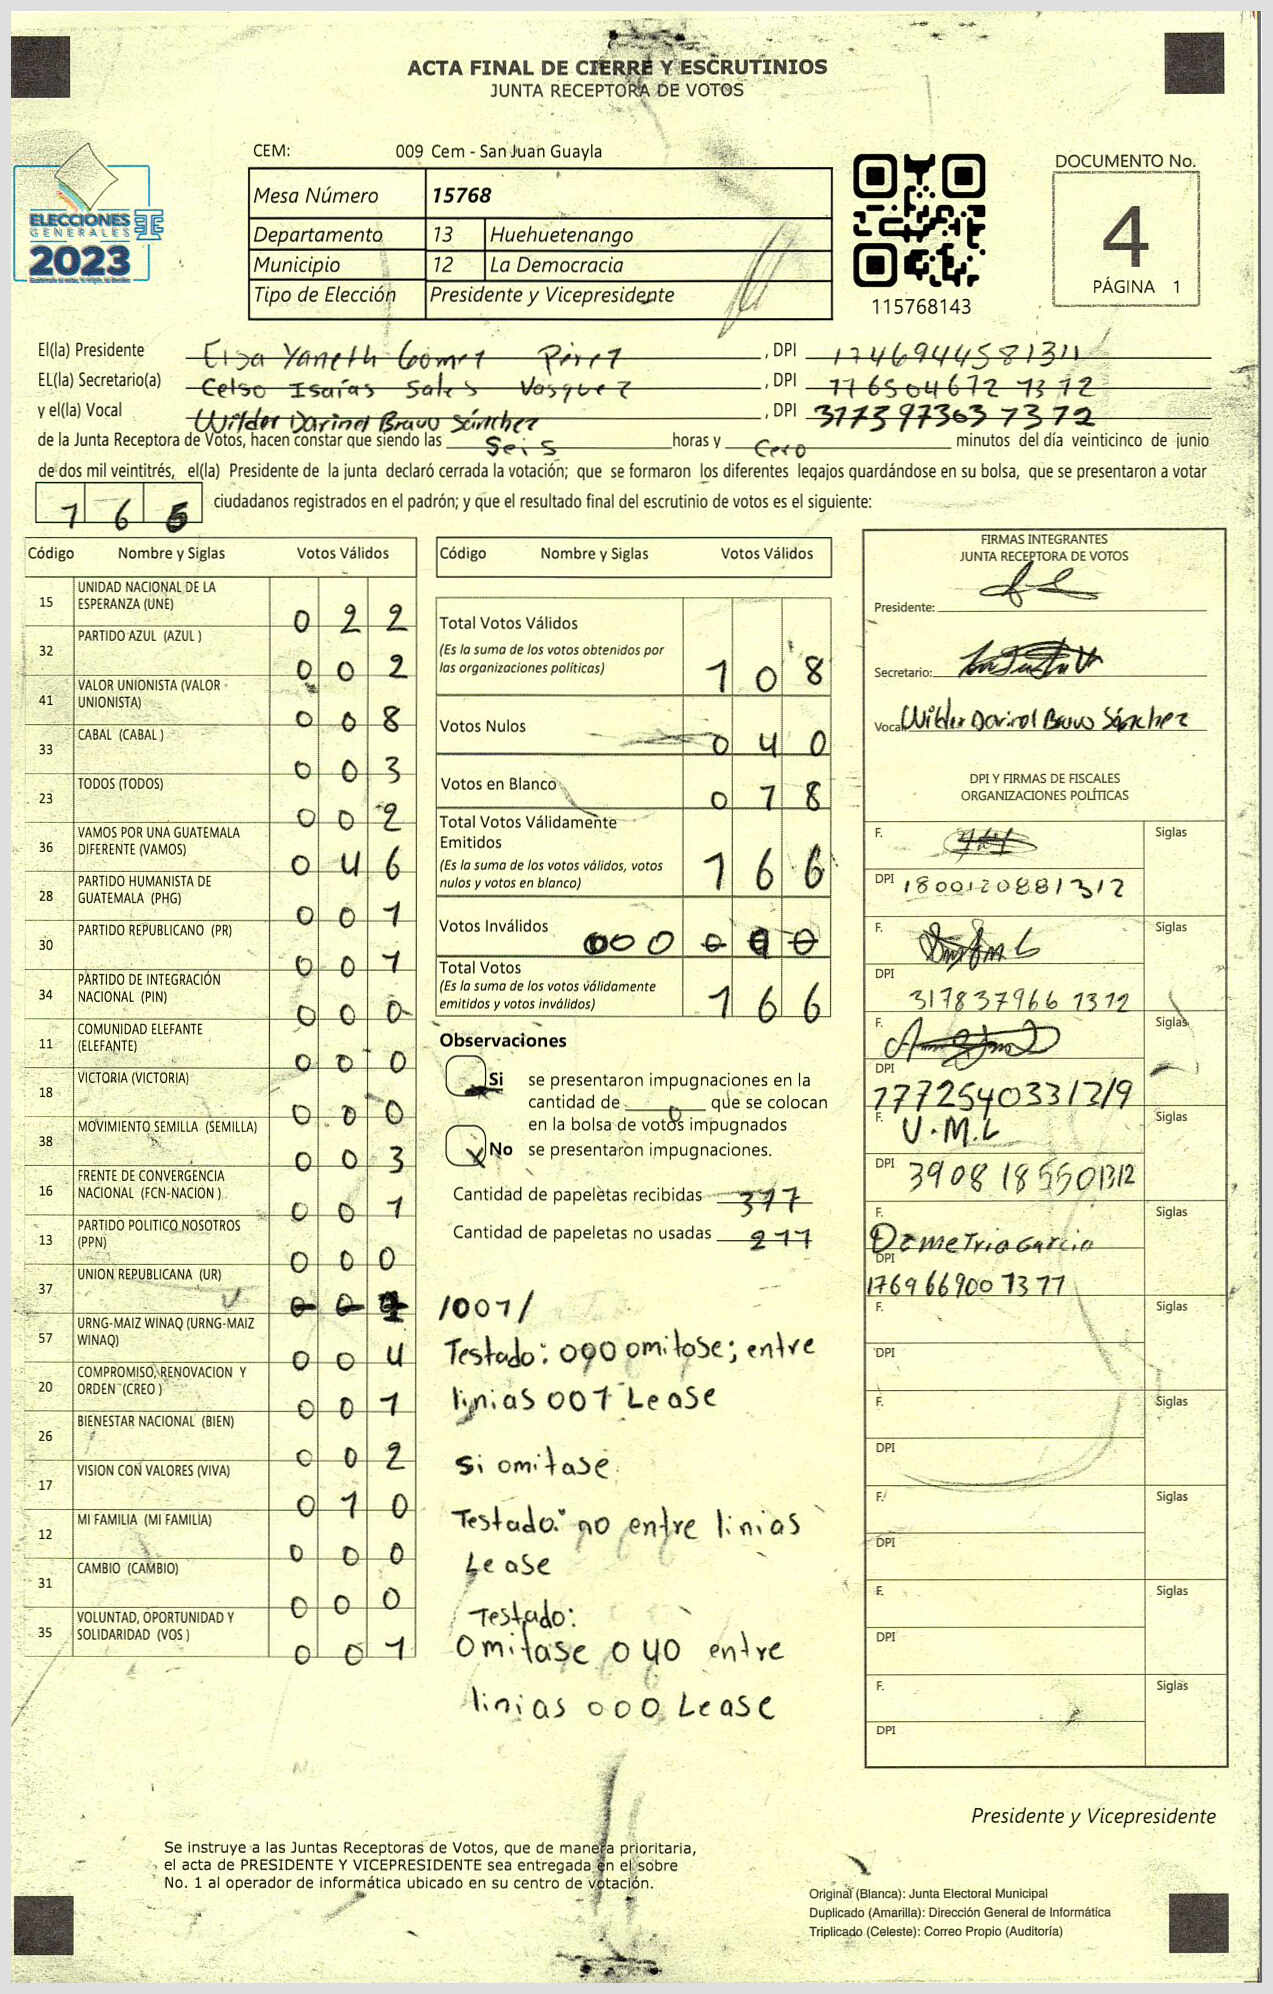 ACTA FINAL DE CIERRE Y ESCRUTINIOS
JUNTA RECEPTORA DE VOTOS
CEM: 009 Cem - San Juan Guayla
ELECCIONES
GENERALES
2023
Mesa Número 15768
Departamento 13 Huehuetenango
Municipio 12 La Democracia
Tipo de Elección Presidente y Vicepresidente
115768143
DOCUMENTO No.
4
PÁGINA 1
El(la) Presidente Elsa Yaneth Gómez Pérez, DPI
EL(la) Secretario(a) Celso Isaías Sales Vasquez, DPI
y el(la) Vocal Wilder Darinel Bravo Sánchez, DPI
de la Junta Receptora de Votos, hacen constar que siendo las Seis horas y Cero minutos del día veinticinco de junio
de dos mil veintitrés, el(la) Presidente de la junta declaró cerrada la votación; que se formaron los diferentes legajos quardándose en su bolsa, que se presentaron a votar
165 ciudadanos registrados en el padrón; y que el resultado final del escrutinio de votos es el siguiente:
Código Nombre y Siglas Votos Válidos
15 UNIDAD NACIONAL DE LA ESPERANZA (UNE) 0 2 2
32 PARTIDO AZUL (AZUL ) 0 0 2
41 VALOR UNIONISTA (VALOR UNIONISTA) 0 0 8
33 CABAL (CABAL ) 0 0 3
23 TODOS (TODOS) 0 0 2
36 VAMOS POR UNA GUATEMALA DIFERENTE (VAMOS) 0 4 6
28 PARTIDO HUMANISTA DE GUATEMALA (PHG) 0 0 1
30 PARTIDO REPUBLICANO (PR) 0 0 1
34 PARTIDO DE INTEGRACIÓN NACIONAL (PIN) 0 0 0
11 COMUNIDAD ELEFANTE (ELEFANTE) 0 0 0
18 VICTORIA (VICTORIA) 0 0 0
38 MOVIMIENTO SEMILLA (SEMILLA) 0 0 3
16 FRENTE DE CONVERGENCIA NACIONAL (FCN-NACION ) 0 0 1
13 PARTIDO POLITICO NOSOTROS (PPN) 0 0 0
37 UNION REPUBLICANA (UR) /001/
57 URNG-MAIZ WINAQ (URNG-MAIZ WINAQ) 0 0 4
20 COMPROMISO, RENOVACION Y ORDEN (CREO ) 0 0 1
26 BIENESTAR NACIONAL (BIEN) 0 0 2
17 VISION CON VALORES (VIVA) 0 1 0
12 MI FAMILIA (MI FAMILIA) 0 0 0
31 CAMBIO (CAMBIO) 0 0 0
35 VOLUNTAD, OPORTUNIDAD Y SOLIDARIDAD (VOS ) 0 0 1
Código Nombre y Siglas Votos Válidos
Total Votos Válidos
(Es la suma de los votos obtenidos por
las organizaciones políticas) 1 0 8
Votos Nulos 0 4 0
Votos en Blanco 0 1 8
Total Votos Válidamente
Emitidos
(Es la suma de los votos válidos, votos
nulos y votos en blanco) 1 6 6
Votos Inválidos 000
Total Votos
(Es la suma de los votos válidamente
emitidos y votos inválidos) 1 6 6
Observaciones
Si se presentaron impugnaciones en la
cantidad de 0 que se colocan
en la bolsa de votos impugnados
X No se presentaron impugnaciones.
Cantidad de papeletas recibidas 377
Cantidad de papeletas no usadas 211
Testado: 000 omitose; entre
linias 001 Lease
si omitase
Testado: no entre linias
Lease
Testado:
Omitase 040 entre
linias 000 Lease
FIRMAS INTEGRANTES
JUNTA RECEPTORA DE VOTOS
Presidente:
Secretario:
Vocal Wilder Darinel Bravo Sánchez
DPI Y FIRMAS DE FISCALES
ORGANIZACIONES POLÍTICAS
F. Siglas
DPI 1800120881312
F. Siglas
DPI 317837966 1312
F. Siglas
DPI 1772540331319
F. V.M.L Siglas
DPI 3908 18550 1312
F. Demetrio Garcia Siglas
DPI 1769 66900 1311
F. Siglas
DPI
F. Siglas
DPI
F. Siglas
DPI
F. Siglas
DPI
F. Siglas
DPI
Presidente y Vicepresidente
Se instruye a las Juntas Receptoras de Votos, que de manera prioritaria,
el acta de PRESIDENTE Y VICEPRESIDENTE sea entregada en el sobre
No. 1 al operador de informática ubicado en su centro de votación.
Original (Blanca): Junta Electoral Municipal
Duplicado (Amarilla): Dirección General de Informática
Triplicado (Celeste): Correo Propio (Auditoría)